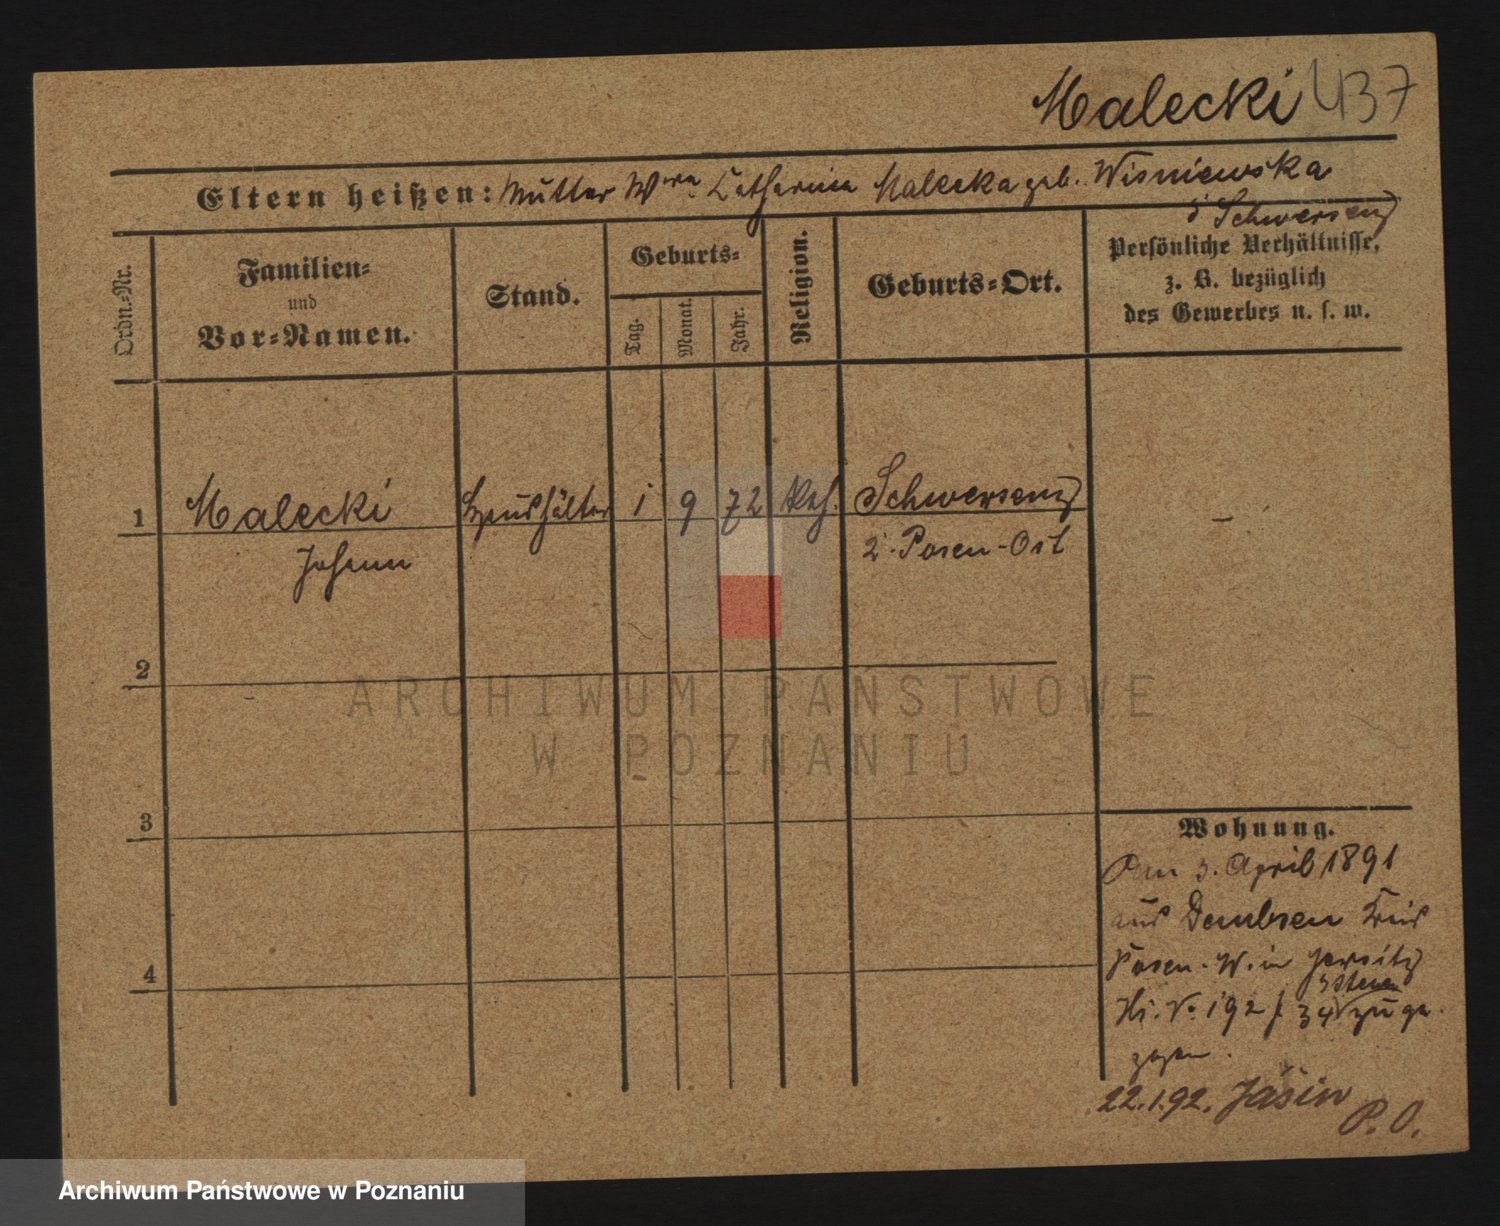 Malecki 437
Eltern heißen: Mutter Wwe. Catharina Malecka geb. Wisniewska
Schwersenz
Ordn.=Nr.
Familien=
und
Vor=Namen.
Stand.
Geburts=
Tag.
Monat.
Jahr.
Religion.
Geburts=Ort.
Persönliche Verhältnisse,
z. B. bezüglich
des Gewerbes u. s. w.
1 Malecki Haushälter 1 9 72 kath. Schwersenz –
Johann Posen-Ost
2
3
4
Wohnung.
3. April 1891
aus Dembsen Kreis
Posen-W. in Jersitz
No 192 34 zuge
zogen.
22.1.92. Jasin
P. O.
ARCHIWUM PAŃSTWOWE
W POZNANIU
Archiwum Państwowe w Poznaniu